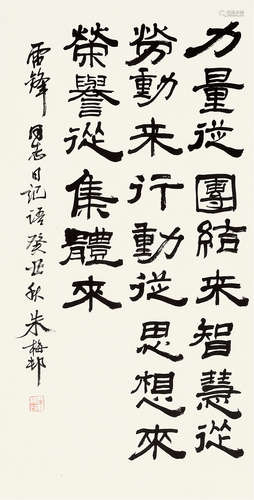 力量從團結来智慧從
勞動来行動從思想來
榮譽從集體來
雷鋒同志日記語癸丑秋朱梅邨